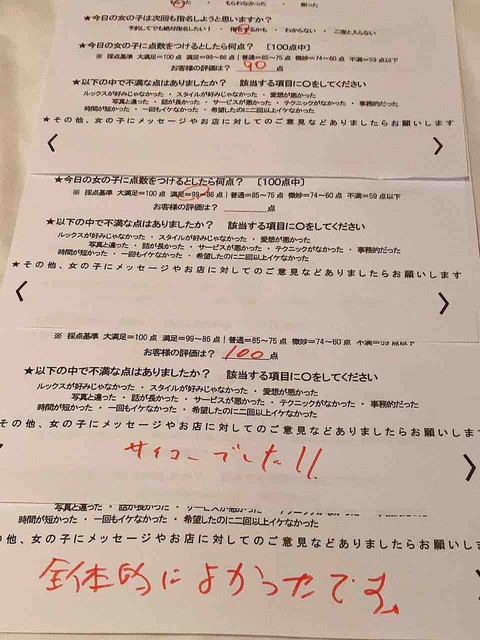 た ・ もらわなかった ・ 断った
★今日の女の子は次回も指名しようと思いますか？
予約してでも絶対指名したい！ ・ 指名するかも ・ わからない ・ 二度と入らない
★今日の女の子に点数をつけるとしたら何点？ 〔100点中〕
※ 採点基準 大満足＝100点 満足＝99～86点｜普通＝85～75点 微妙＝74～60点 不満＝59点以下
お客様の評価は？ 90 点
★以下の中で不満な点はありましたか？ 該当する項目に〇をしてください
ルックスが好みじゃなかった ・ スタイルが好みじゃなかった ・ 愛想が悪かった
写真と違った ・ 話が長かった ・ サービスが悪かった ・ テクニックがなかった ・ 事務的だった
時間が短かった ・ 一回もイケなかった ・ 希望したのに二回以上イケなかった
★その他、女の子にメッセージやお店に対してのご意見などありましたらお願いします
★今日の女の子に点数をつけるとしたら何点？ 〔100点中〕
※ 採点基準 大満足＝100点 満足＝99～86点｜普通＝85～75点 微妙＝74～60点 不満＝59点以下
お客様の評価は？ 点
★以下の中で不満な点はありましたか？ 該当する項目に〇をしてください
ルックスが好みじゃなかった ・ スタイルが好みじゃなかった ・ 愛想が悪かった
写真と違った ・ 話が長かった ・ サービスが悪かった ・ テクニックがなかった ・ 事務的だった
時間が短かった ・ 一回もイケなかった ・ 希望したのに二回以上イケなかった
★その他、女の子にメッセージやお店に対してのご意見などありましたらお願いします
※ 採点基準 大満足＝100点 満足＝99～86点｜普通＝85～75点 微妙＝74～60点 不満＝59点以下
お客様の評価は？ 100 点
★以下の中で不満な点はありましたか？ 該当する項目に〇をしてください
ルックスが好みじゃなかった ・ スタイルが好みじゃなかった ・ 愛想が悪かった
写真と違った ・ 話が長かった ・ サービスが悪かった ・ テクニックがなかった ・ 事務的だった
時間が短かった ・ 一回もイケなかった ・ 希望したのに二回以上イケなかった
その他、女の子にメッセージやお店に対してのご意見などありましたらお願いしま
サイコーでした!!
写真と違った ・ 話が長かった ・ サービスが悪かった
時間が短かった ・ 一回もイケなかった ・ 希望したのに二回以上イケなかった
他、女の子にメッセージやお店に対してのご意見などありましたらお願いし
全体的によかったです。